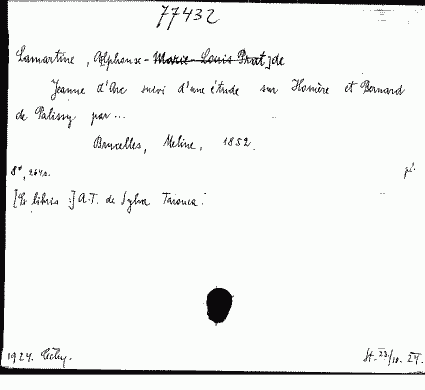 77432
Lamartine, Alphonse-Marie-Louis Prat] de
Jeanne d'Arc suivi d'une étude sur Homère et Bernard
de Palissy par ...
Bruxelles, Meline, 1852.
8°, 264 p.
[Ex libris :] A.T. de Sylva Tarouca.
1924.
St. 23/10. 24.